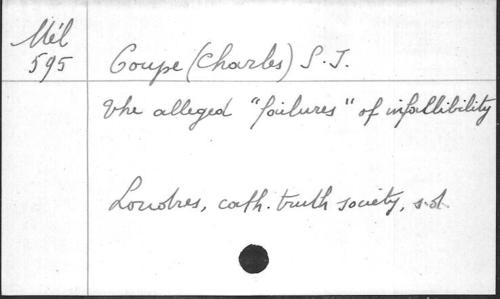 Mél
595
Coupe (Charles) S. J.
The alleged "failures" of infallibility
Londres, cath. truth society, s.d.